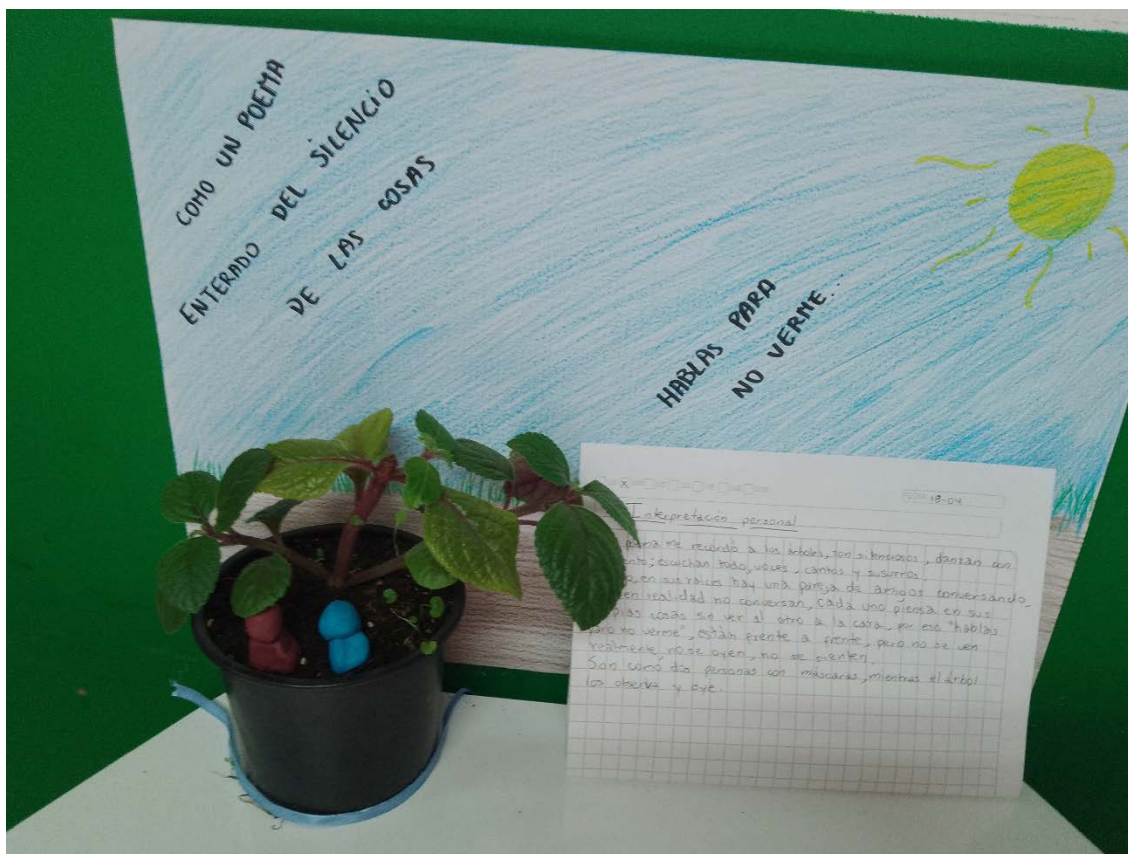 COMO UN POEMA
ENTERADO DEL SILENCIO
DE LAS COSAS
HABLAS PARA
NO VERME...
X
18-04
Interpretación personal
me recordó a los árboles, son silenciosos, danzan con
escuchan todo, voces, cantos y susurros.
en sus raíces hay una pareja de amigos conversando,
en realidad no conversan, cada uno piensa en sus
cosas sin ver al otro a la cara, por eso "hablas
para no verme", están frente a frente, pero no se ven
realmente no se oyen, no se sienten.
Son como dos personas con máscaras, mientras el árbol
los observa y oye.